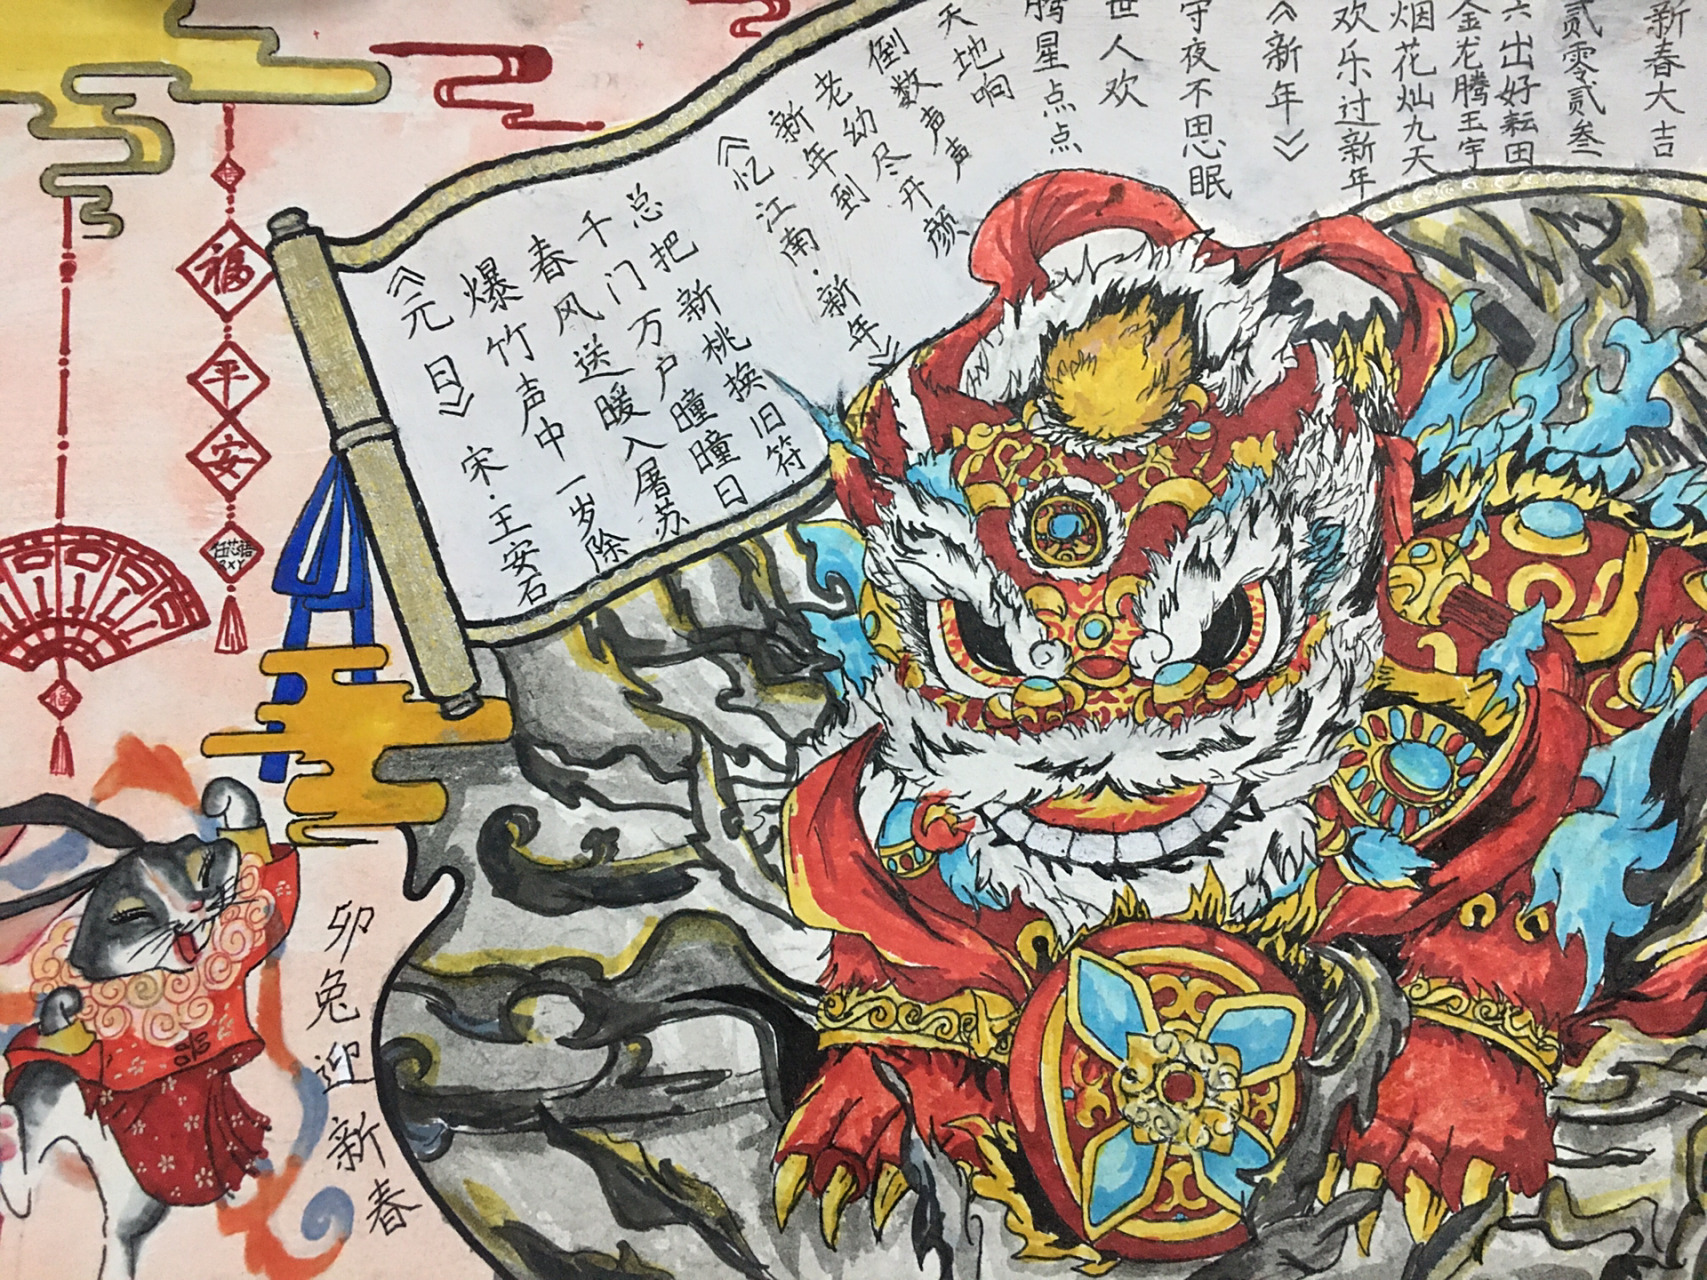 福
平
安
福
《元日》 宋·王安石
爆竹声中一岁除
春风送暖入屠苏
千门万户瞳瞳日
总把新桃换旧符
《忆江南·新年》
新年到
老幼尽开颜
倒数声声
天地响
腾星点点
世人欢
守夜不思眠
《新年》
欢乐过新年
烟花灿九天
金龙腾王宇
六出好耘田
贰零贰叁
新春大吉
卯兔迎新春